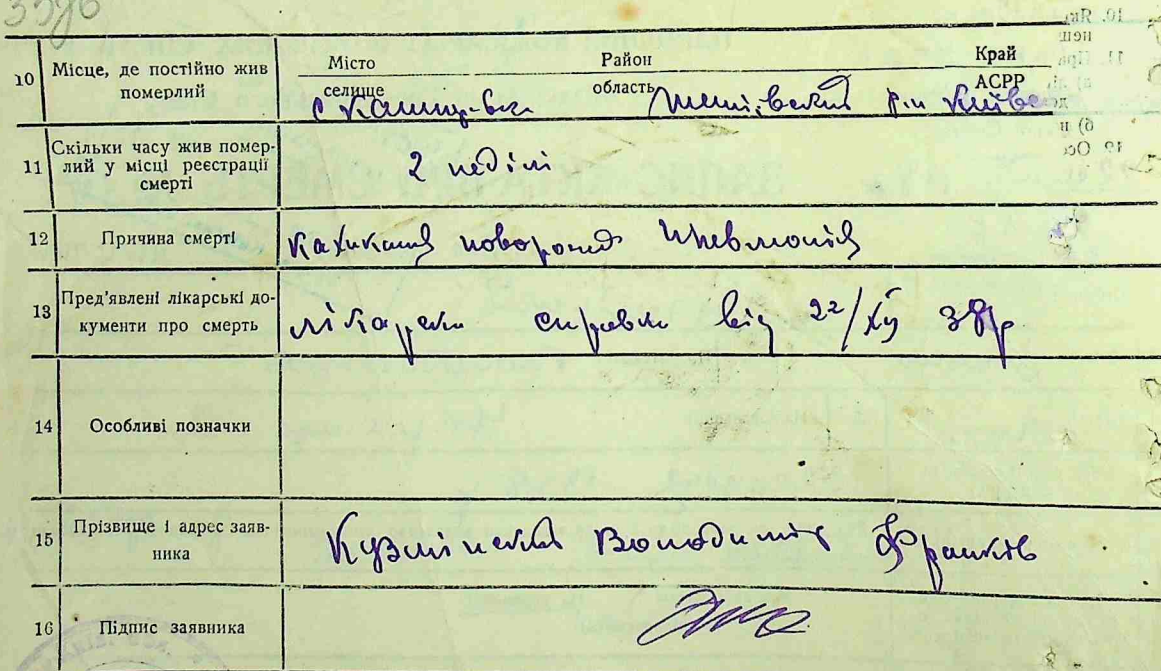 10 Місце, де постійно жив померлий
Місто Район Край
селище область АСРР
с р-н Київс
11 Скільки часу жив помер-
лий у місці реєстрації
смерті
2 неділі
12 Причина смерті
новорожд Пневмонія
13 Пред'явлені лікарські до-
кументи про смерть
лікарськ справк від 22/XII 38р
14 Особливі позначки
15 Прізвище і адрес заяв-
ника
Володимир Франків
16 Підпис заявника